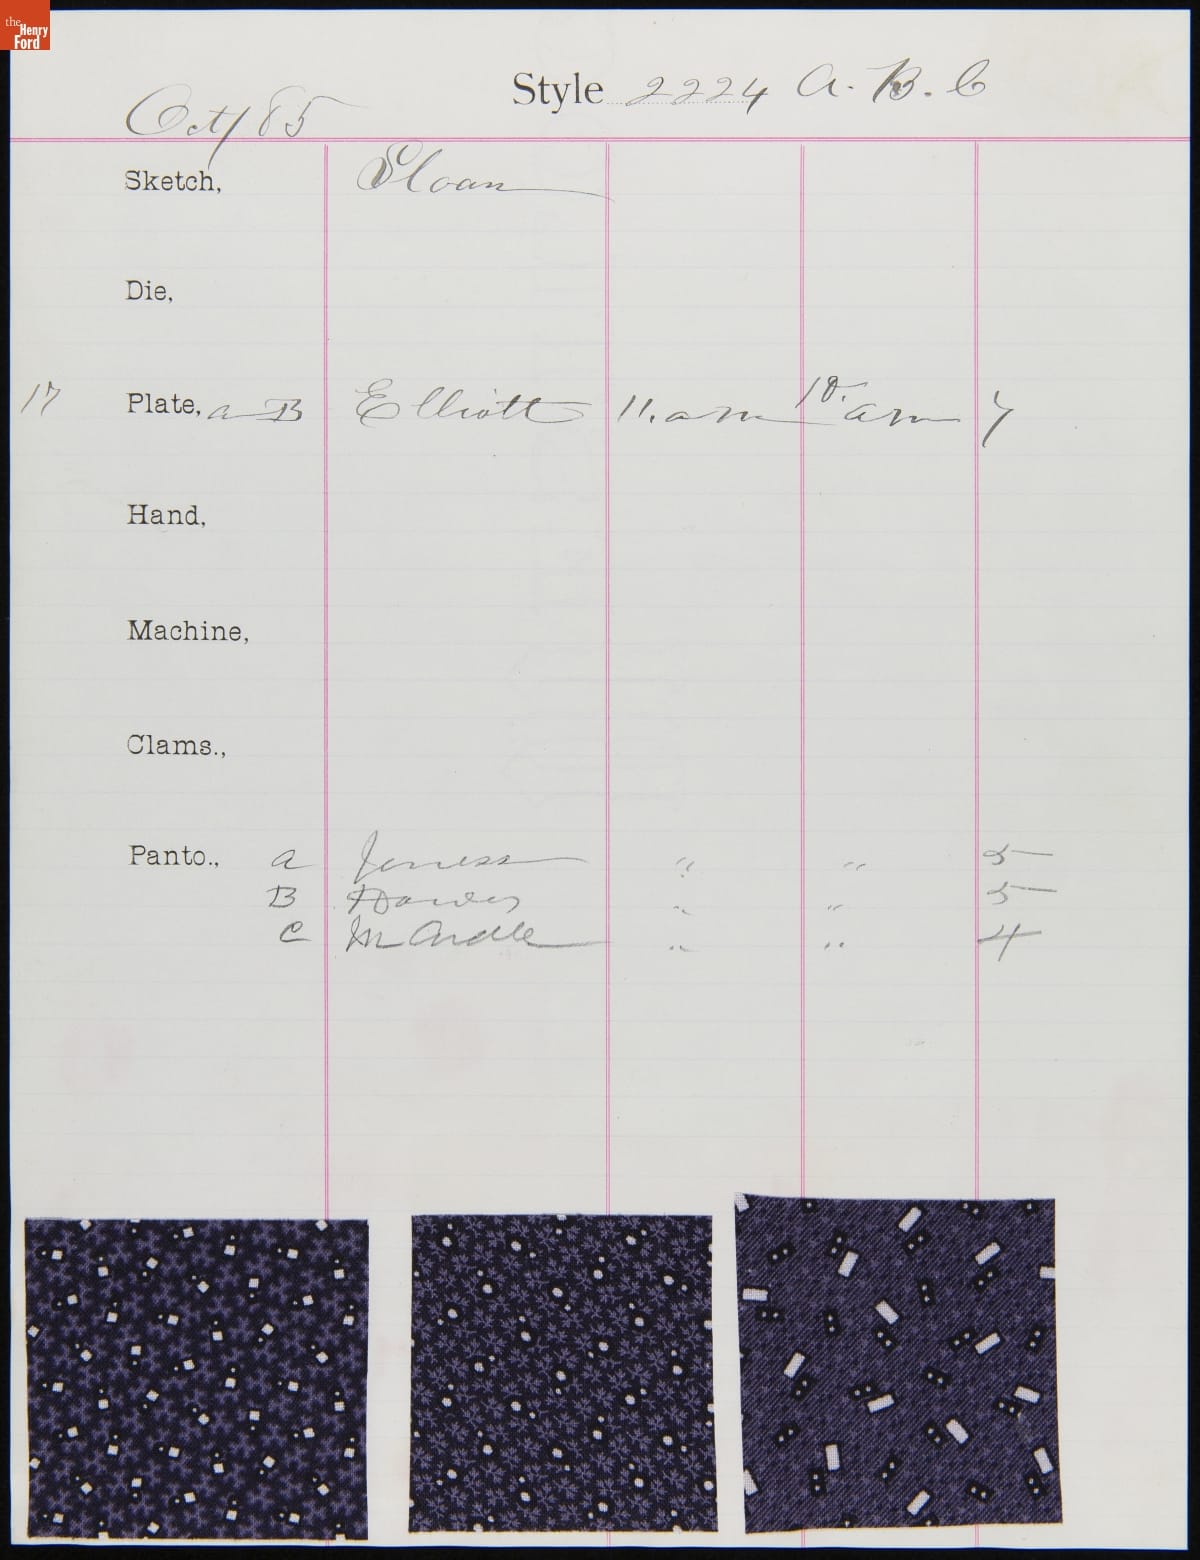 the
Henry
Ford
Style 2224 A. B. C
Oct/85
Sketch, Sloan
Die,
17 Plate, a B Elliott 11. am 18. am 7
Hand,
Machine,
Clams.,
Panto., a Jeness " " 5
B Hawes " " 5
C McArdle " " 4